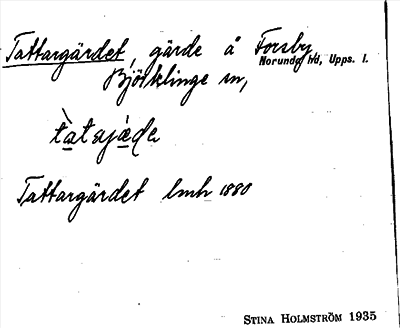 Tattargärdet, gärde å Forsby
Björklinge sn, Norunda hd, Upps. l.
tàtajä̀de
Tattargärdet lmh 1880
STINA HOLMSTRÖM 1935